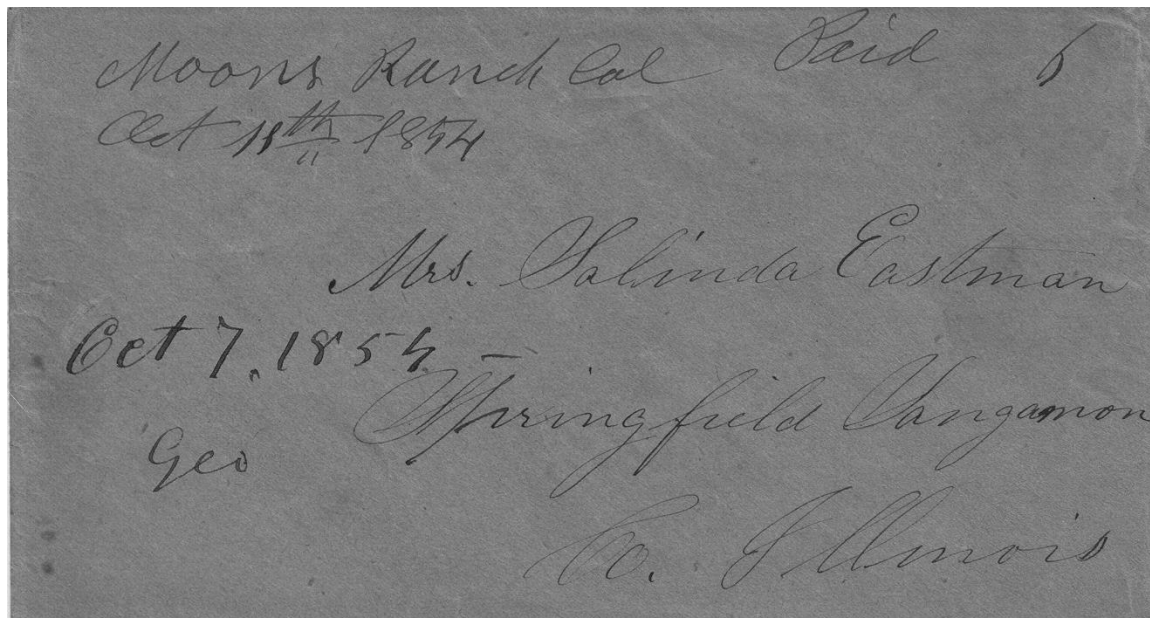 Moons Ranch Cal Paid 6
Oct 11th 1854
Mrs. Salinda Eastman
Oct 7. 1854 –
Springfield Sangamon
Geo
Co. Illinois